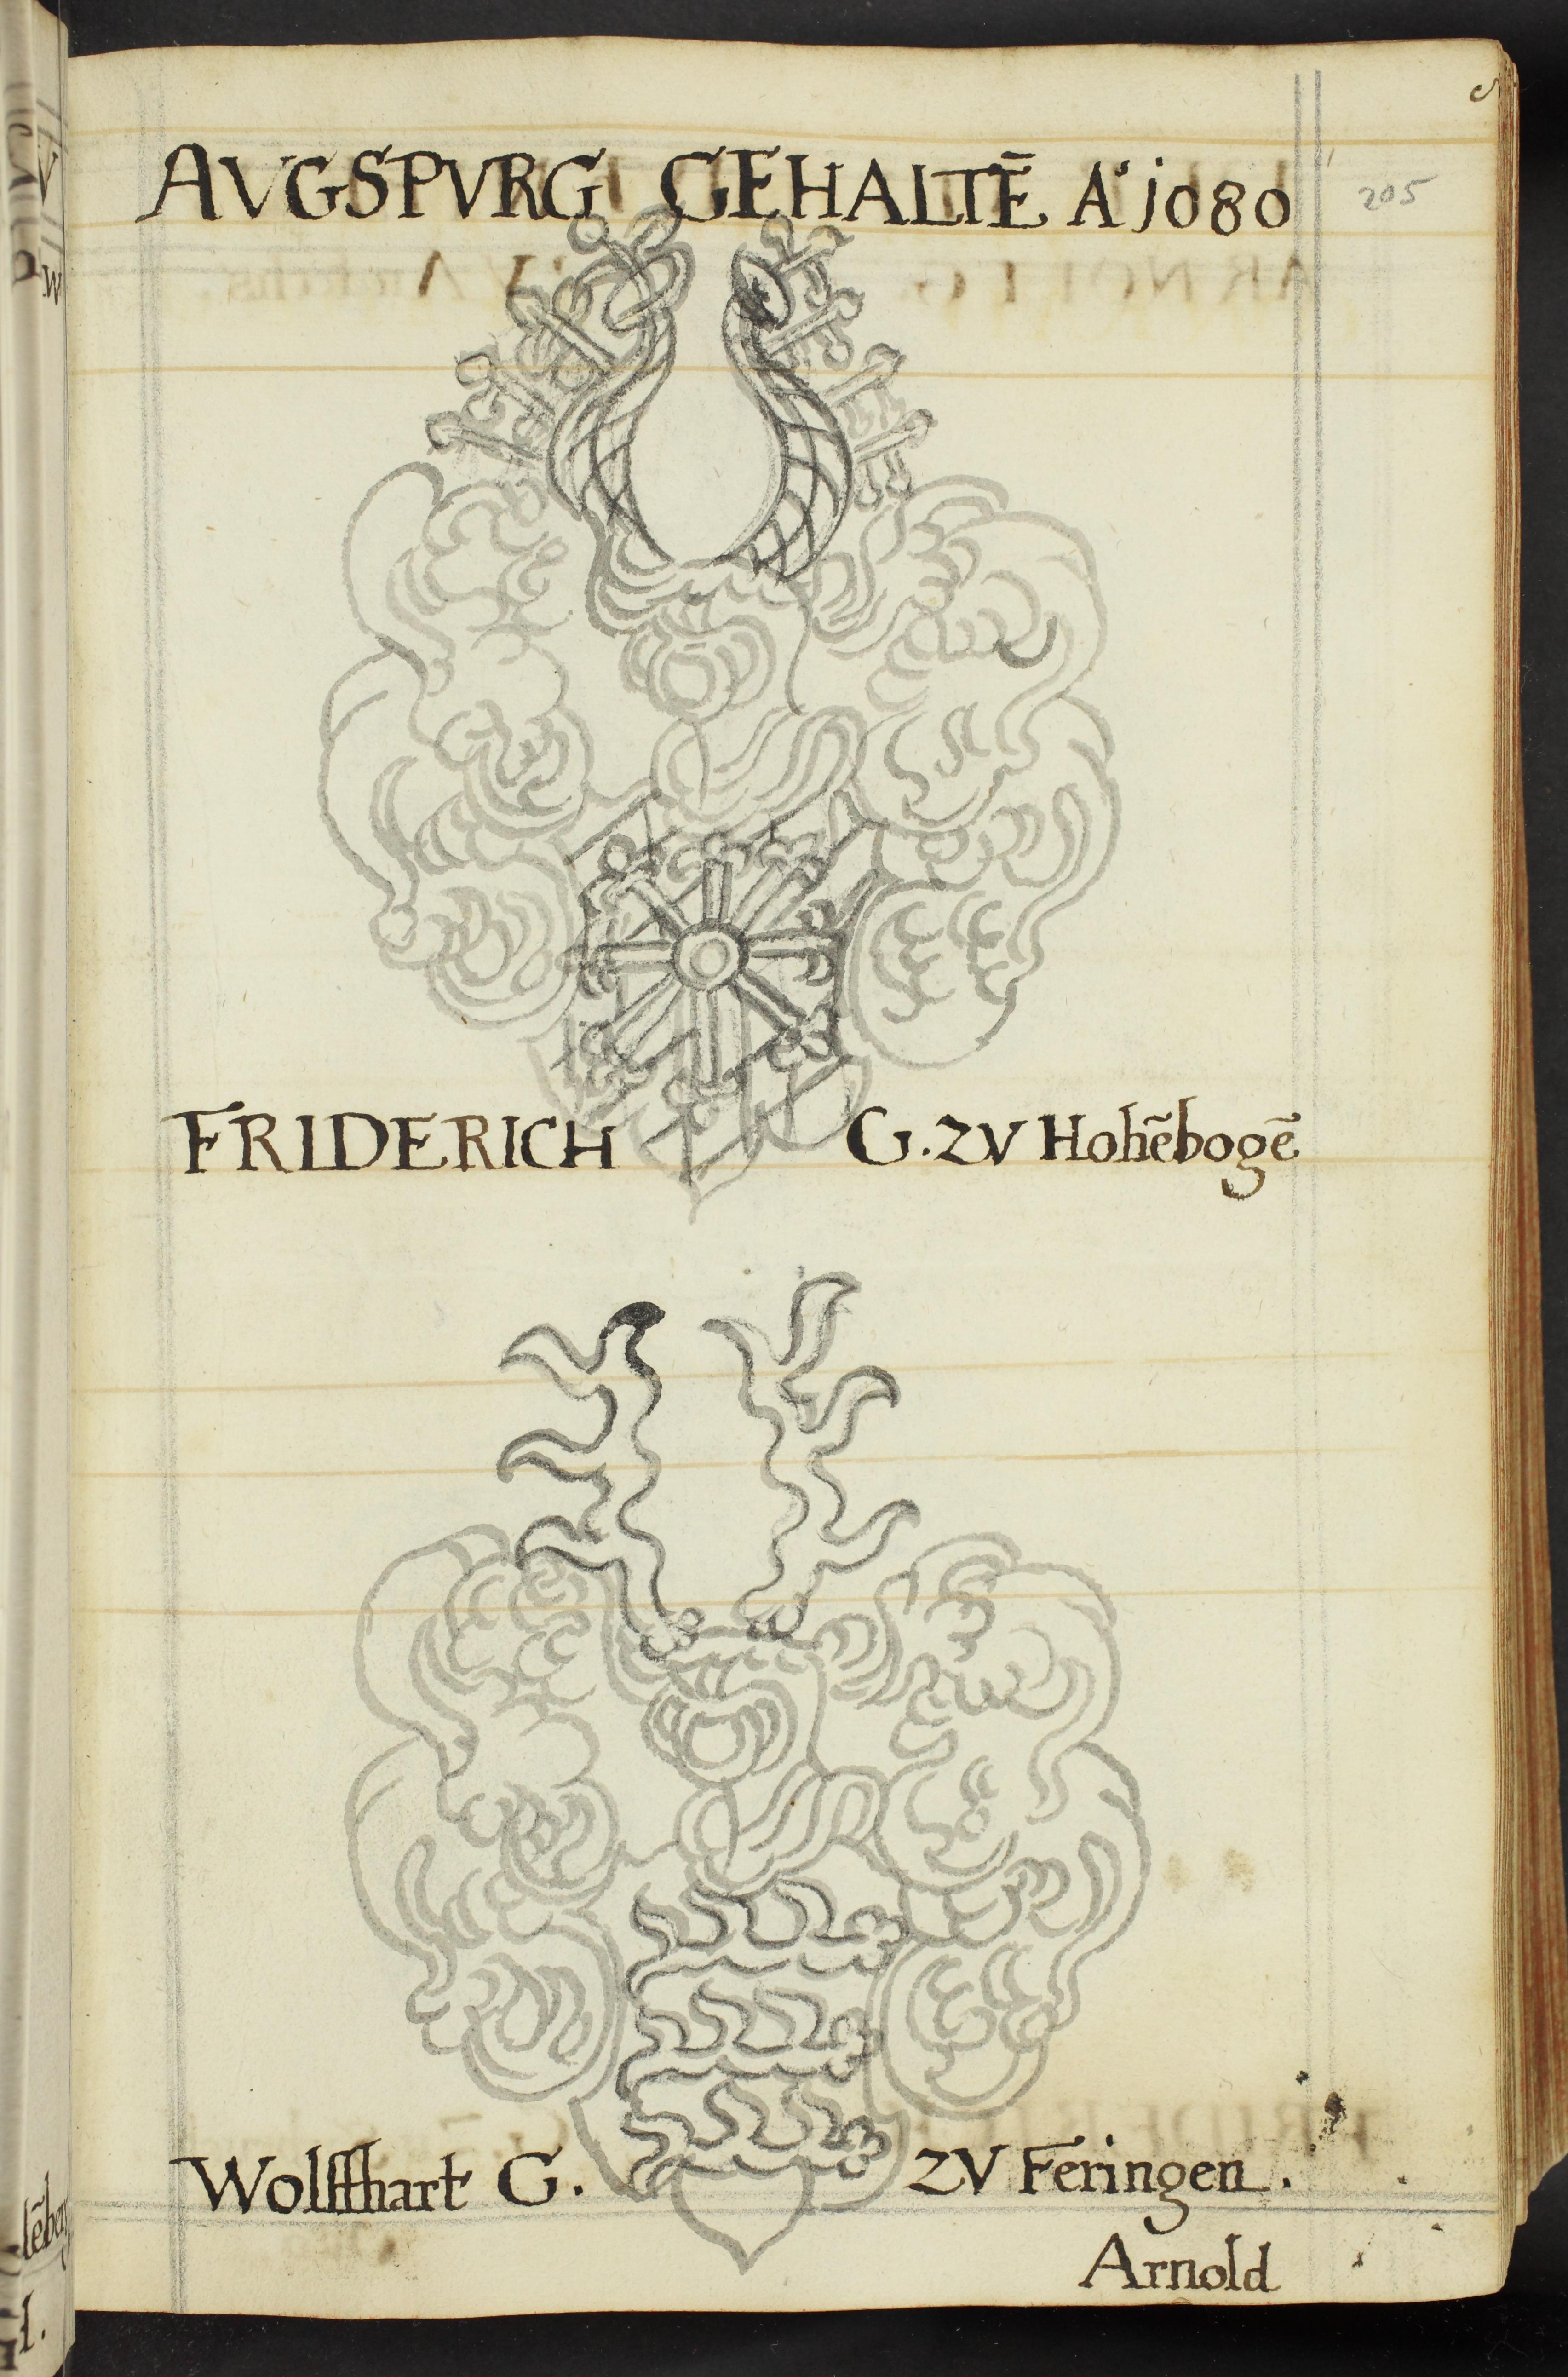 AVGSPVRG GEHALTĒ A° j080
205
FRIDERICH G. ZV Hohēbogē
Wolffhart G. ZV Feringen.
Arnold